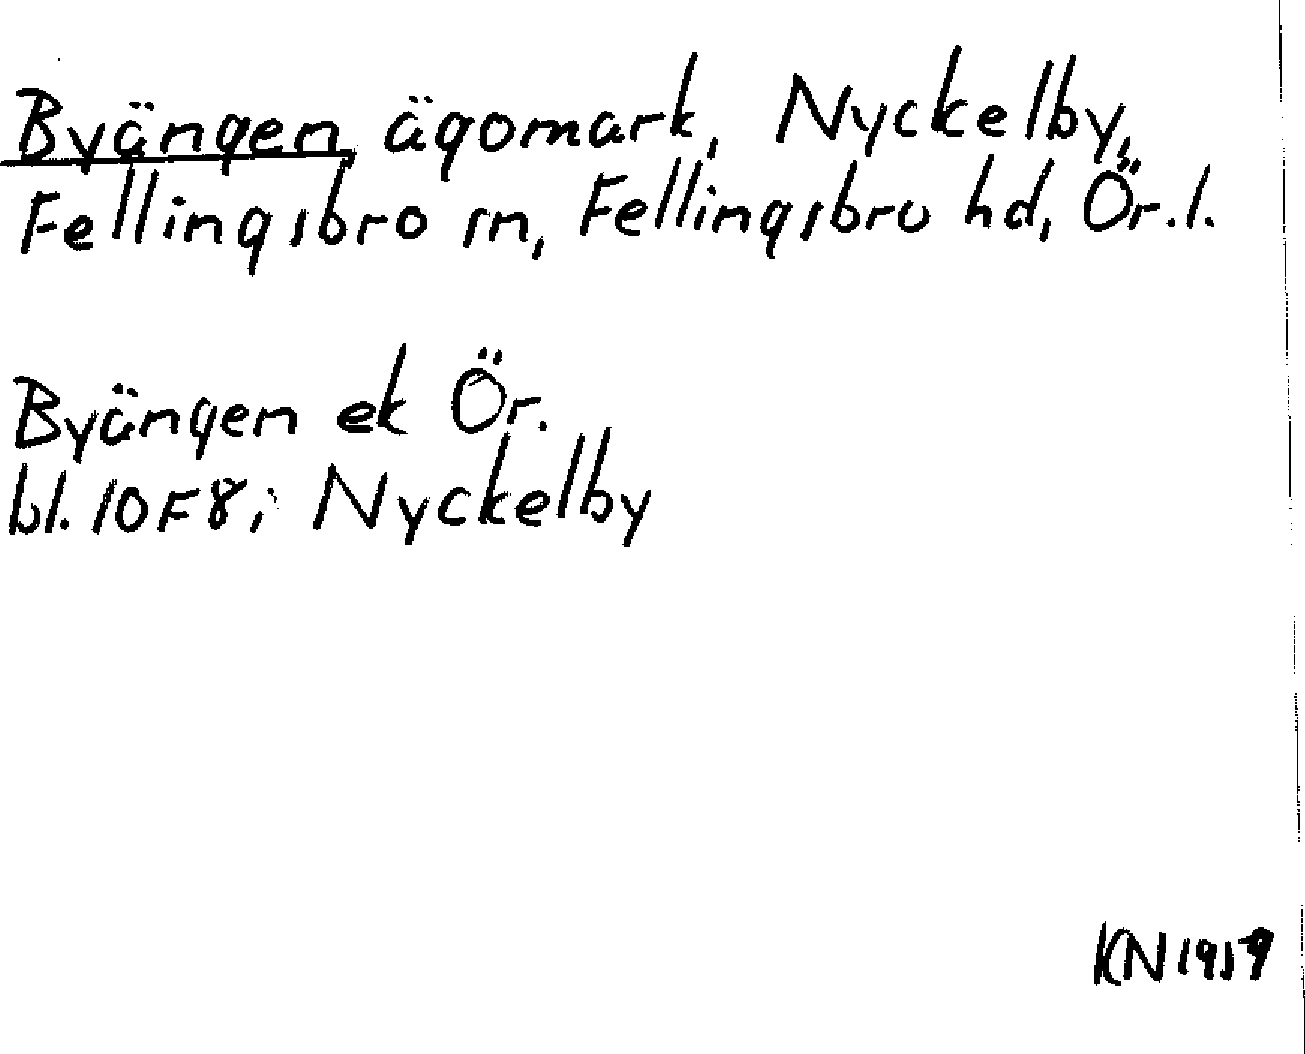 Byängen ägomark, Nyckelby,
Fellingsbro sn, Fellingsbro hd, Ör.l.
Byängen ek Ör.
bl. 10F8; Nyckelby
KN